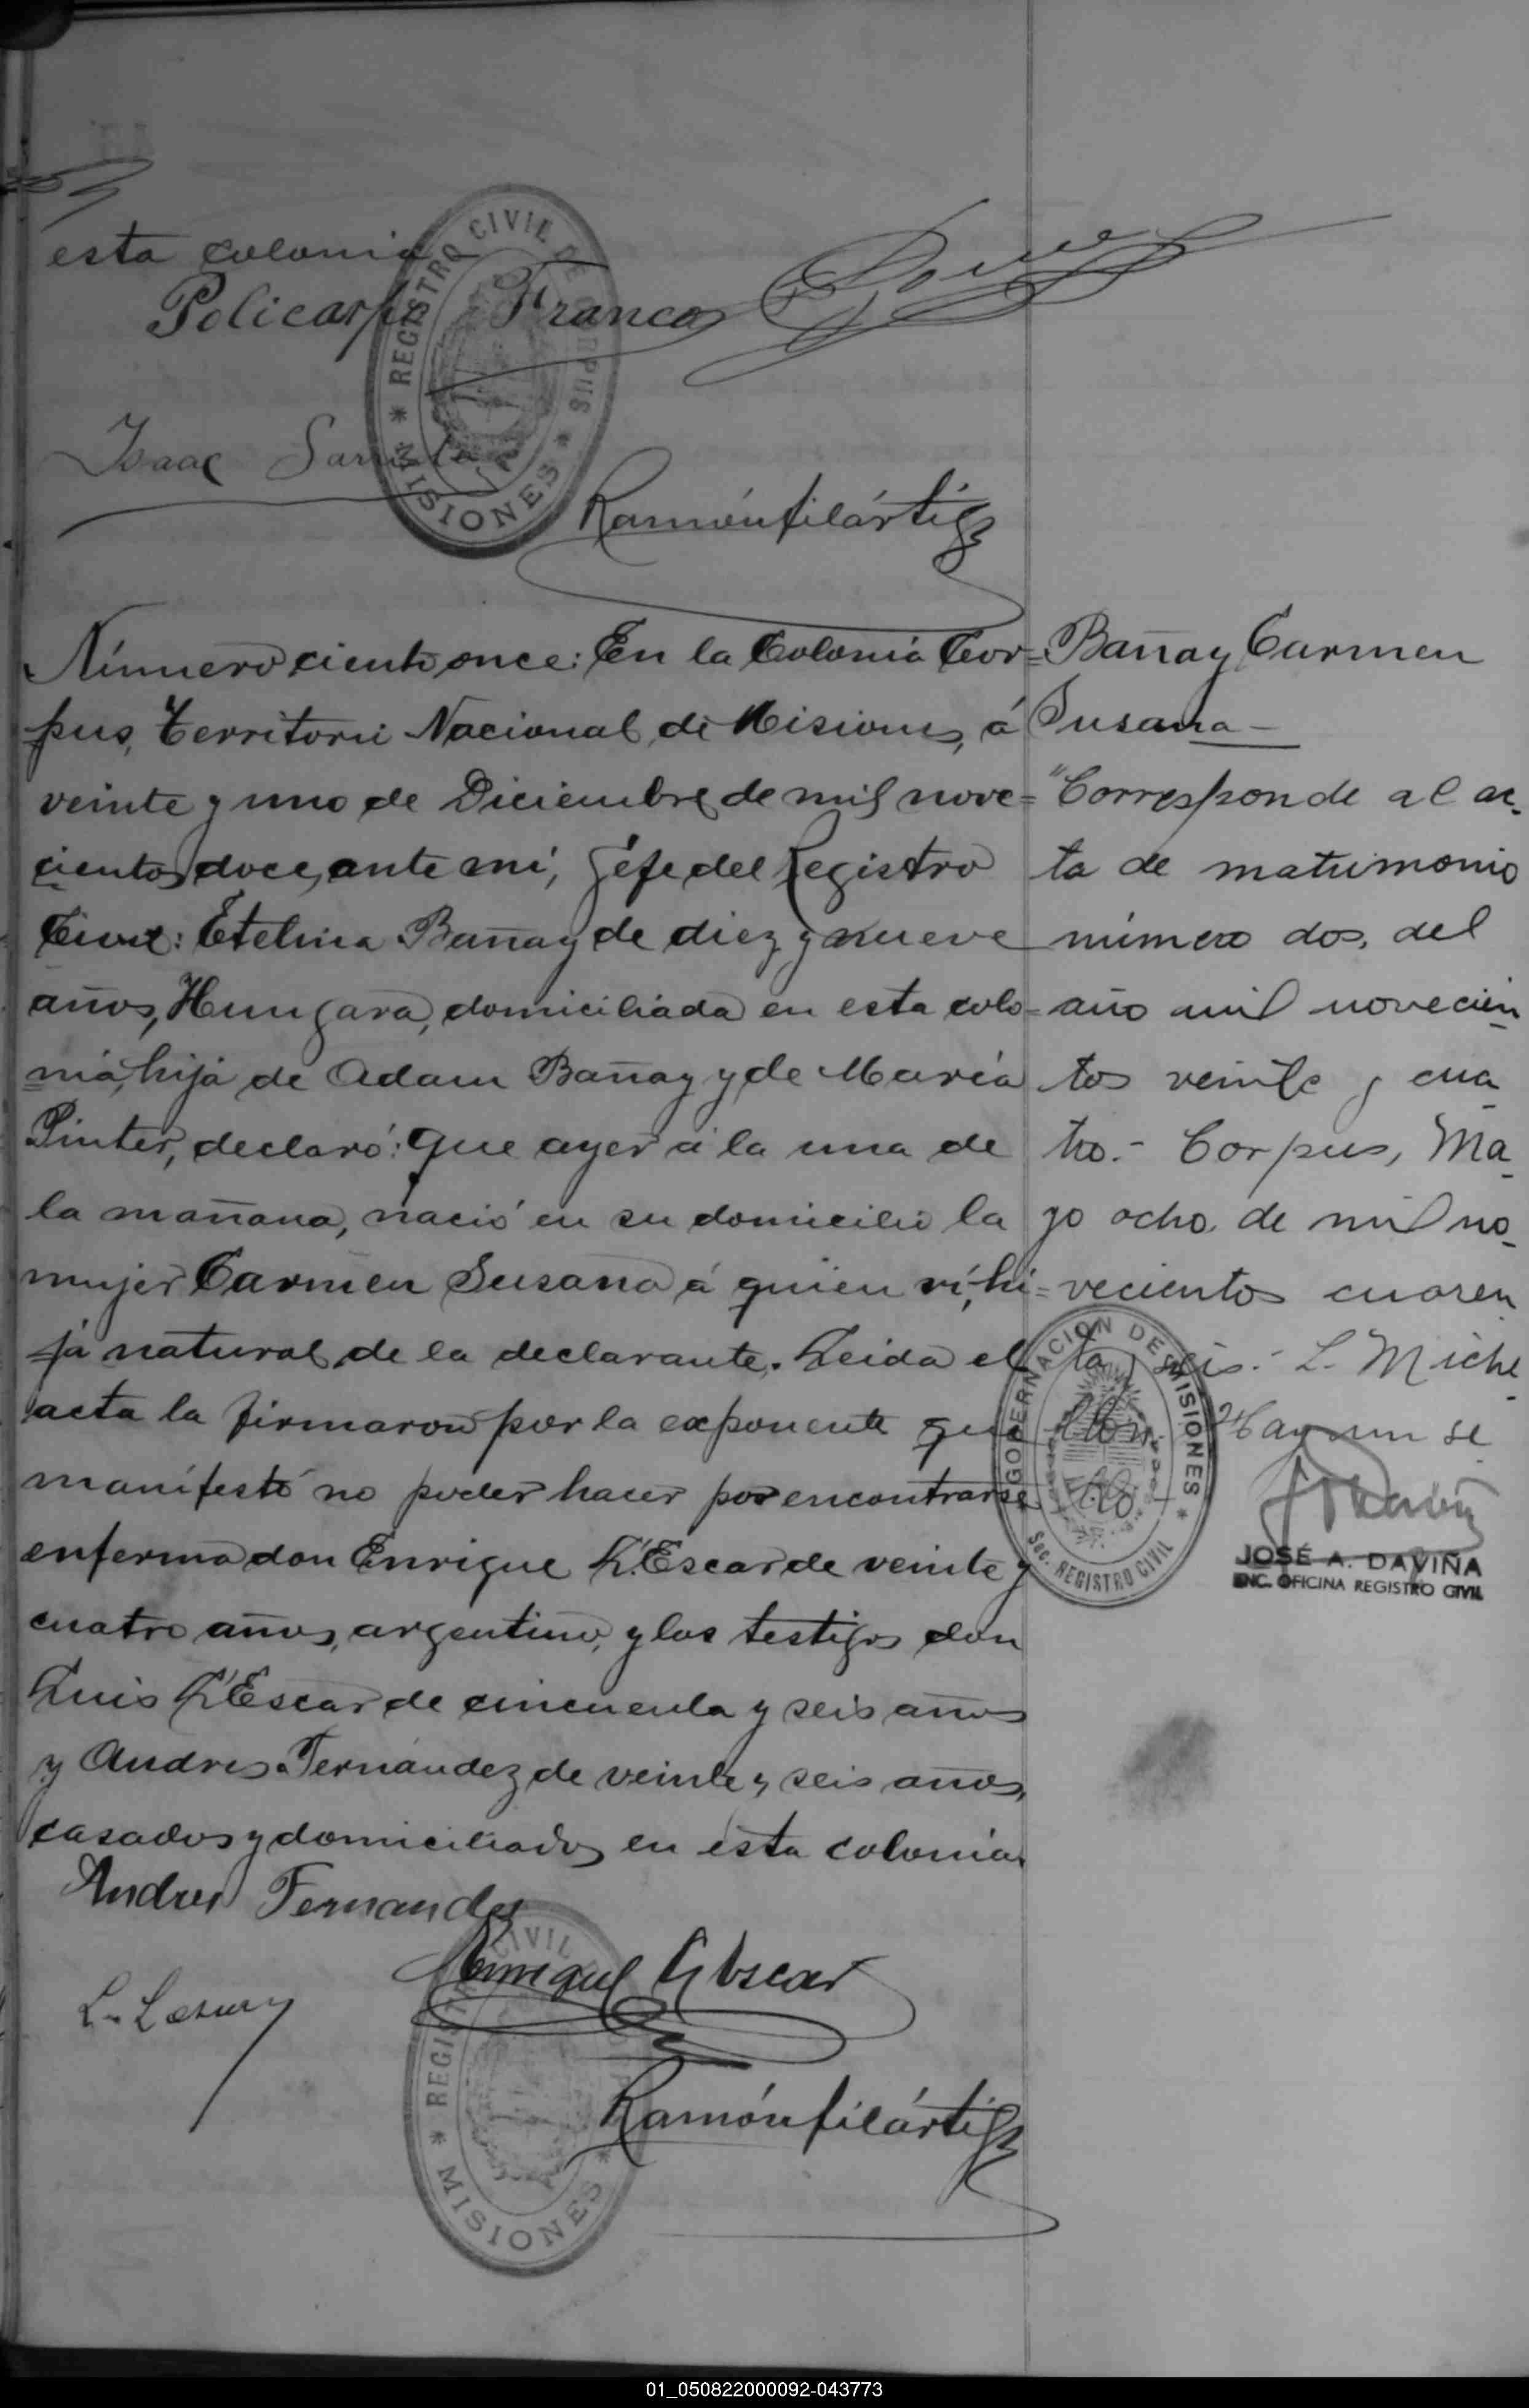 esta colonia
Policarpo Franco
Isaac
Ramón Filártiga
REGISTRO CIVIL DE CORPUS
* MISIONES *
Número ciento once: En la Colonia Cor=
pus, Territorio Nacional de Misiones, á
veinte y uno de Diciembre de mil nove=
cientos doce, ante mí, Géfe del Registro
Civil: Etelina Bañay de diez y nueve
años, Hungara, domiciliada en esta colo=
nia, hija de Adam Bañay y de María
Pinter, declaró: Que ayer á la una de
la mañana, nació en su domicilio la
mujer Carmen Susana á quien ví, hi=
ja natural de la declarante. Leida el
acta la firmaron por la exponente que
manifestó no poder hacer por encontrarse
enferma don Enrique L'Escar de veinte y
cuatro años, argentino, y los testigos don
Luis L'Escar de cincuenta y seis años
y Andres Fernández de veinte y seis años,
casados y domiciliados en esta colonia.
Andres Fernandes
Enrique L'Escar
Ramón Filártiga
REGISTRO CIVIL
* MISIONES *
Bañay Carmen
Susana -
"Corresponde al ac-
ta de matrimonio
número dos, del
año mil novecien-
tos veinte y cua-
tro.- Corpus, Ma-
yo ocho de mil no-
vecientos cuaren
ta y seis.- L. Miche-
llón. Hay un se-
llo -
GOBERNACION DE MISIONES
* Sec. REGISTRO CIVIL *
JOSÉ A. DAVIÑA
ENC. OFICINA REGISTRO CIVIL
01_050822000092-043773